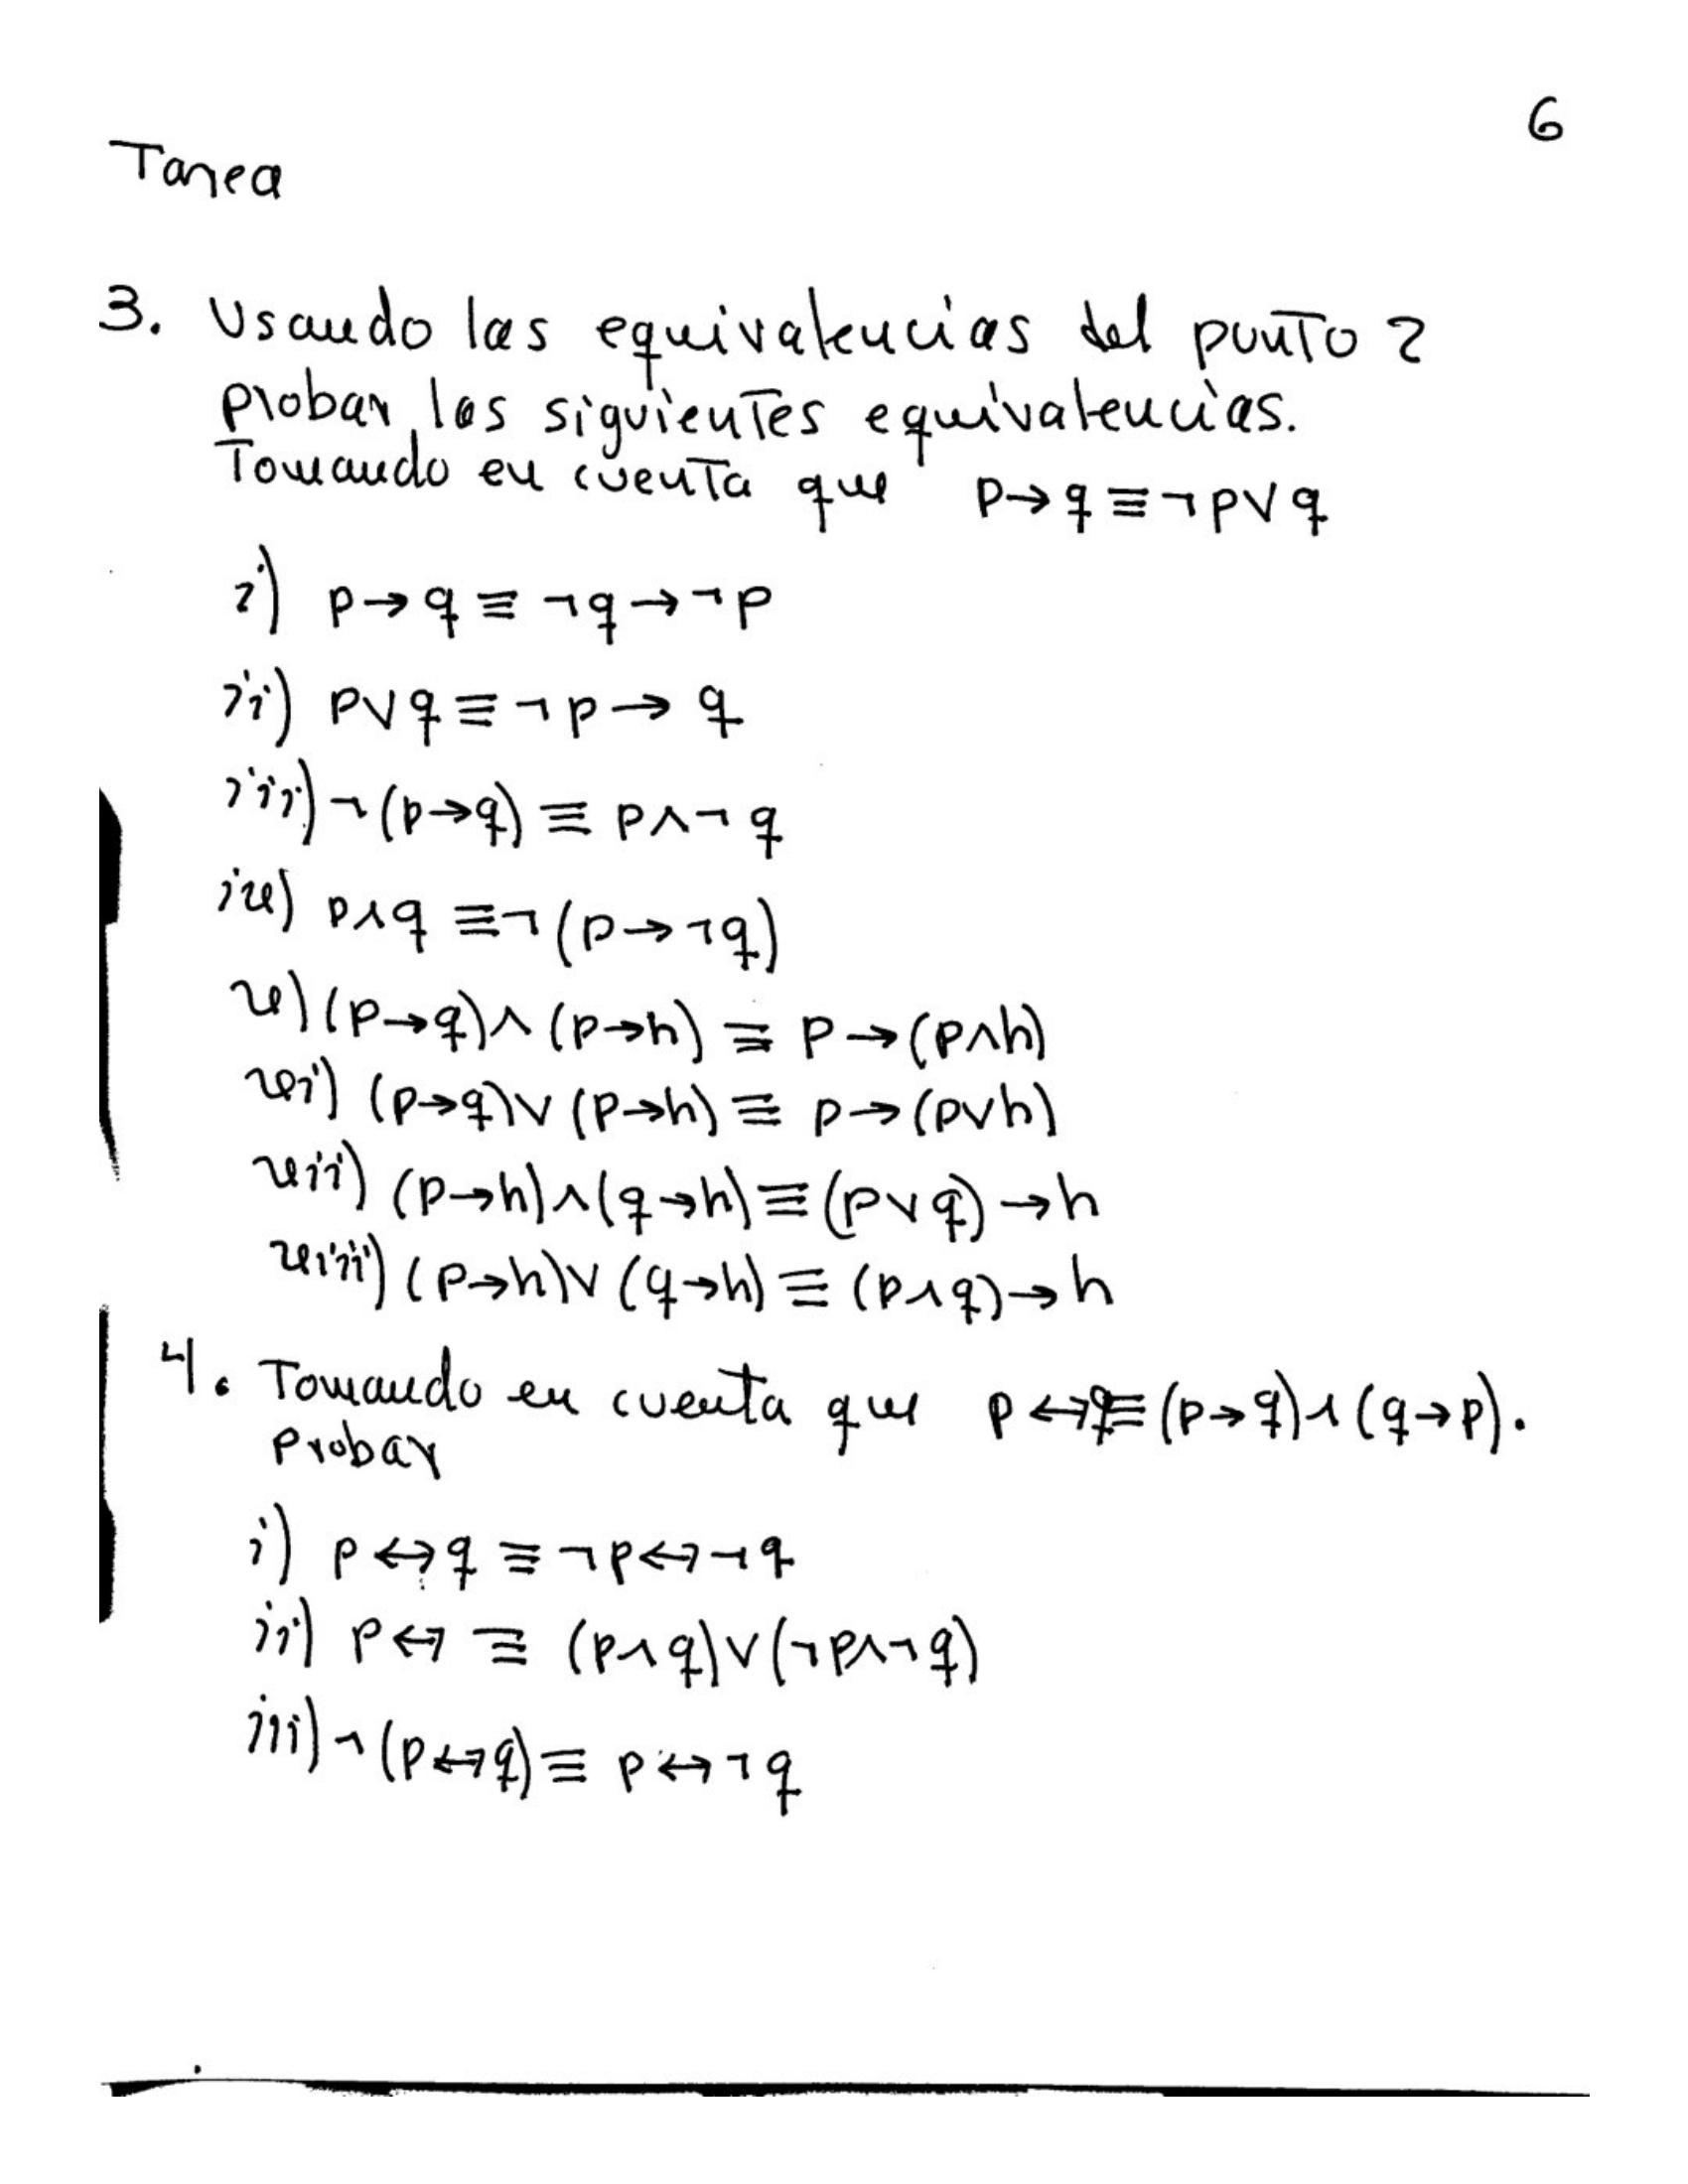 6
Tarea
3. Usando las equivalencias del punto 2
probar las siguientes equivalencias.
Tomando en cuenta que p→q≡¬p∨q
i) p→q≡¬q→¬p
ii) p∨q≡¬p→q
iii) ¬(p→q)≡p∧¬q
iv) p∧q≡¬(p→¬q)
v) (p→q)∧(p→h)≡p→(p∧h)
vi) (p→q)∨(p→h)≡p→(p∨h)
vii) (p→h)∧(q→h)≡(p∨q)→h
viii) (p→h)∨(q→h)≡(p∧q)→h
4. Tomando en cuenta que p↔q≡(p→q)∧(q→p).
Probar
i) p↔q≡¬p↔¬q
ii) p↔≡(p∧q)∨(¬p∧¬q)
iii) ¬(p↔q)≡p↔¬q